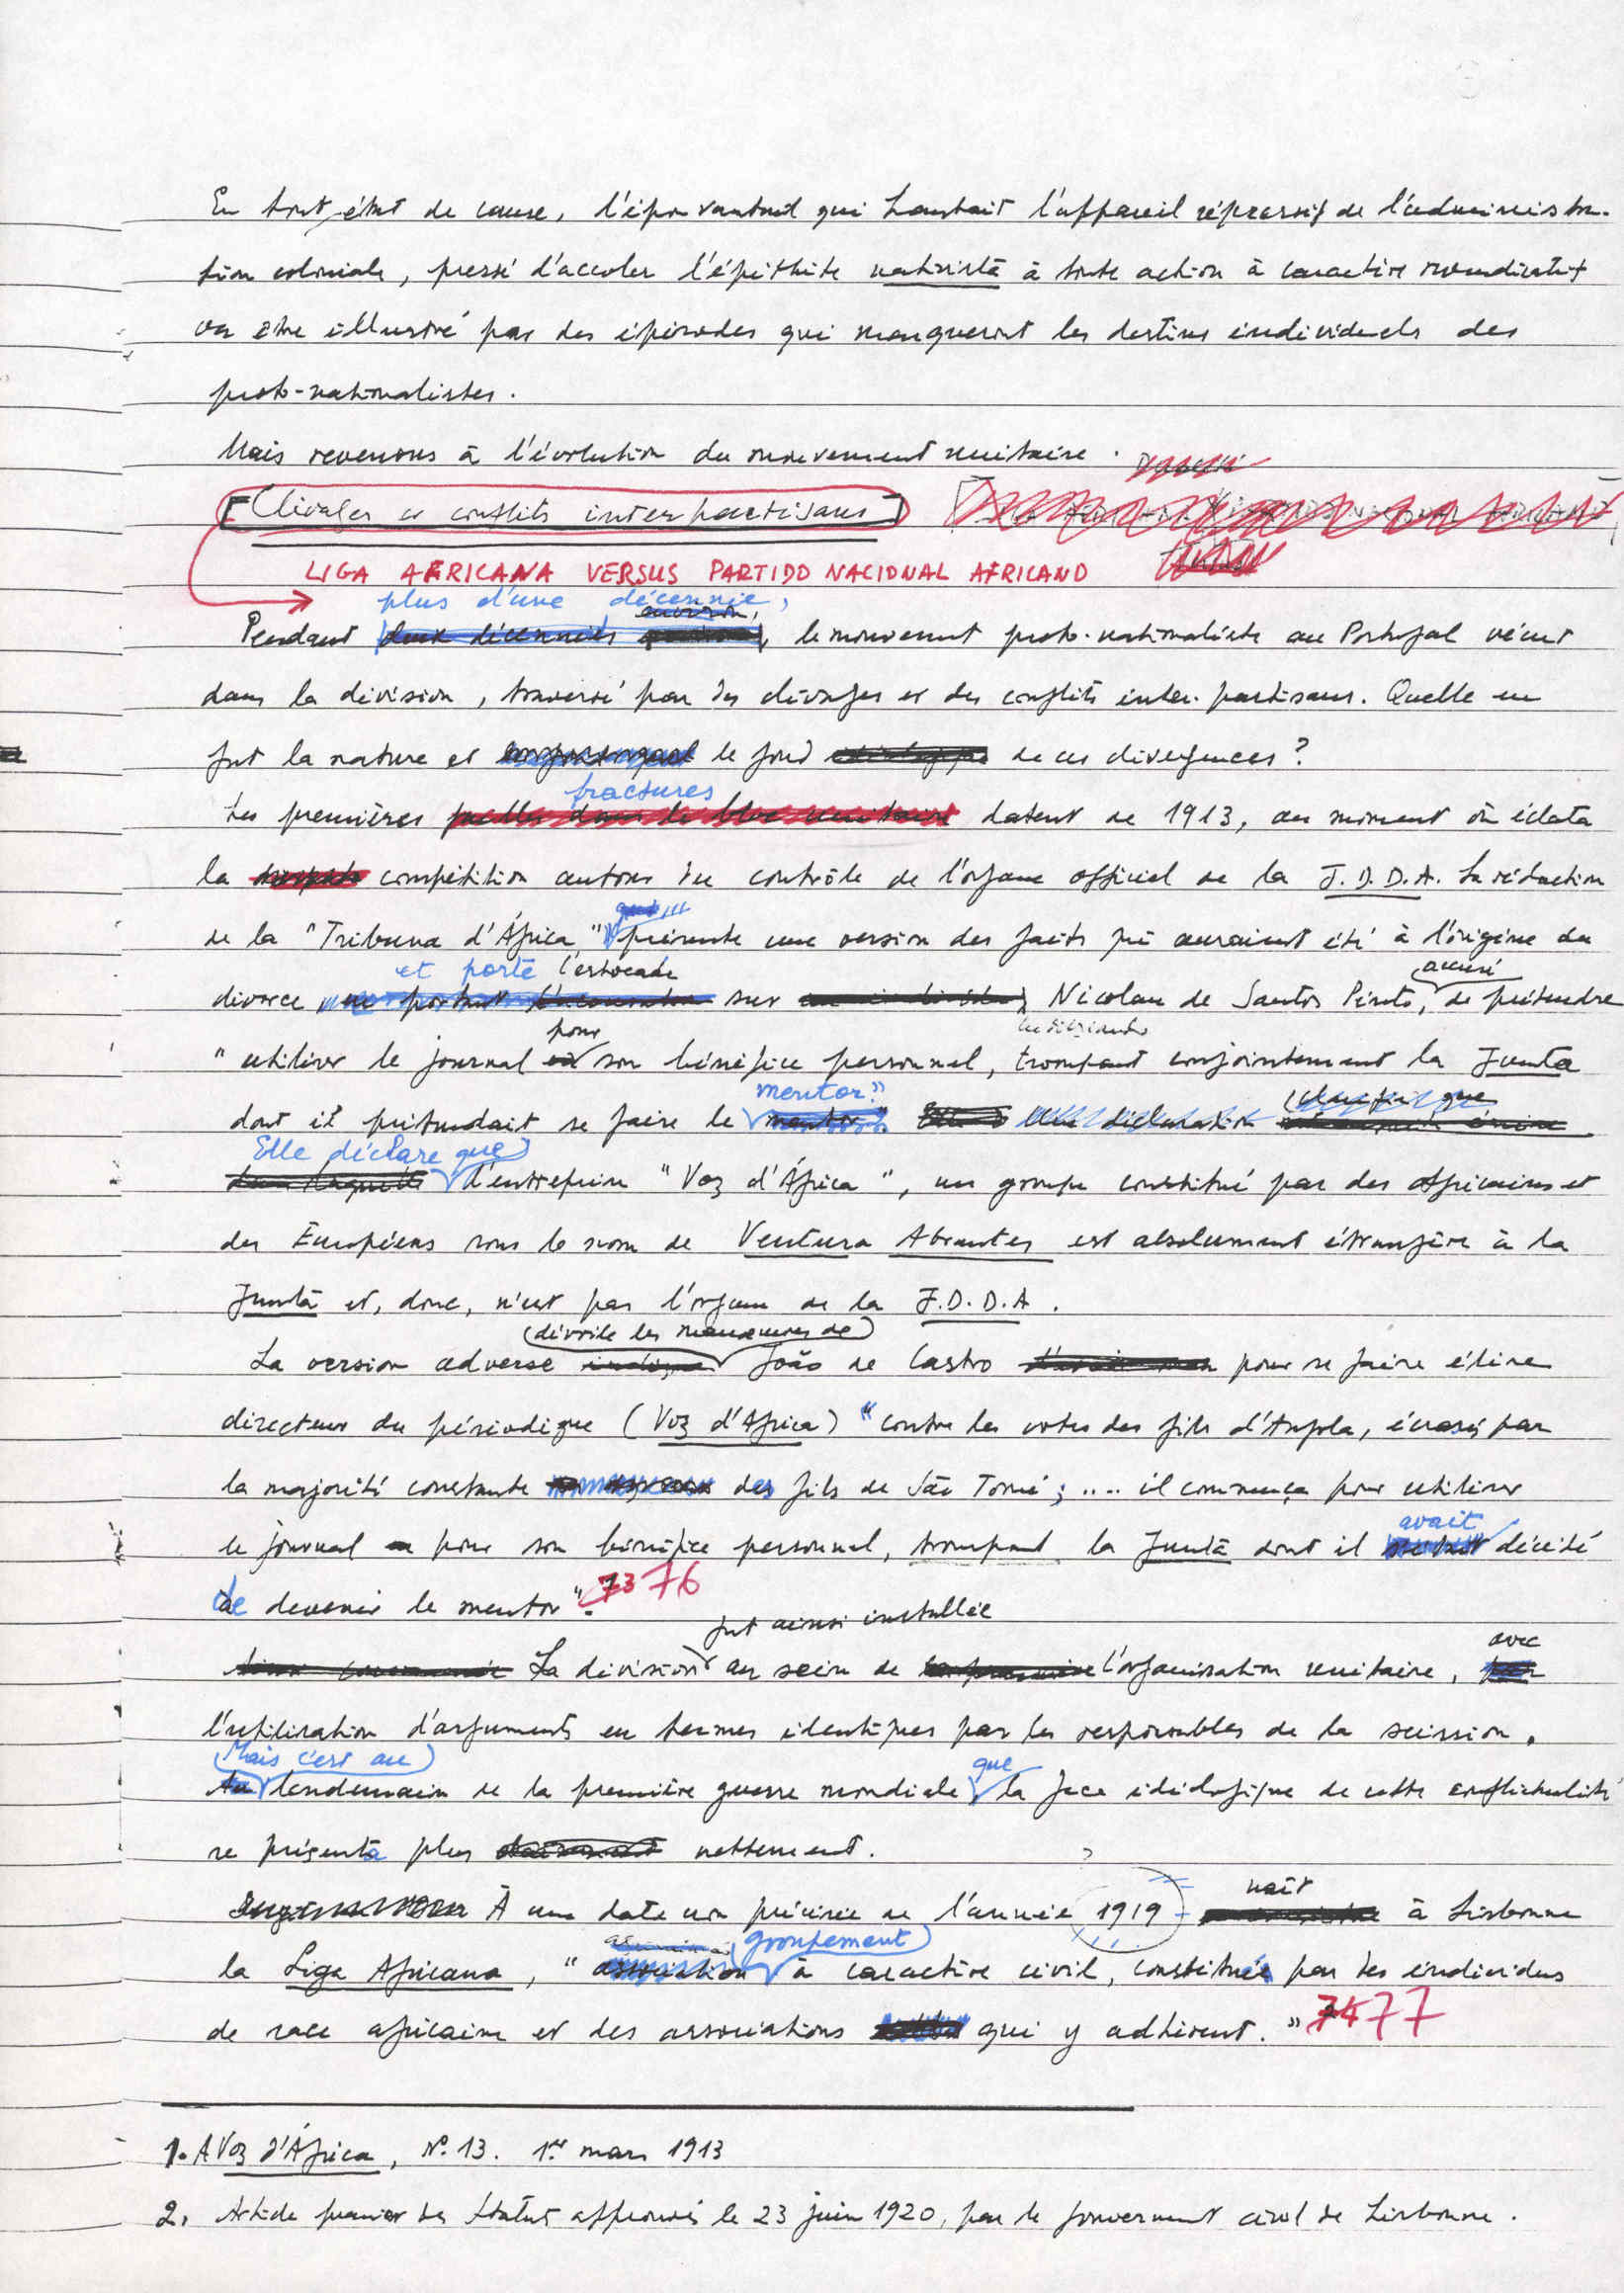 En tout état de cause, l'épouvantail qui hantait l'appareil répressif de l'administra-
tion coloniale, pressé d'accoler l'épithète nativista à toute action à caractère revendicatif
va être illustré par des épisodes qui marqueront les destins individuels des
proto-nationalistes.
Mais revenons à l'évolution du mouvement unitaire.
Clivages et conflits interpartisans
LIGA AFRICANA VERSUS PARTIDO NACIONAL AFRICANO
plus d'une décennie, environ,
Pendant deux décennies, le mouvement proto-nationaliste au Portugal vécut
dans la division, traversé par des clivages et des conflits inter-partisans. Quelle en
fut la nature et le fond de ces divergences ?
fractures
Les premières failles dans le bloc unitaire datent de 1913, au moment où éclata
la compétition autour du contrôle de l'organe officiel de la J.D.D.A. La rédaction
de la "Tribuna d'África" présente une version des faits qui auraient été à l'origine du
et porte l'estocade accusé
divorce en portant l'accusation sur Nicolau de Santos Pinto, de prétendre
pour
"utiliser le journal en son bénéfice personnel, trompant conjointement la Junta
mentor"
dont il prétendait se faire le mentor". déclaration
Elle déclare que
dans laquelle l'entreprise "Voz d'África", un groupe constitué par des Africains et
des Européens sous le nom de Ventura Abrantes est absolument étrangère à la
Junta et, donc, n'est pas l'organe de la J.D.D.A.
(dévoile les manœuvres de)
La version adverse João de Castro pour se faire élire
directeur du périodique (Voz d'Africa) "contre les votes des fils d'Angola, écrasés par
la majorité constante des fils de São Tomé ; .... il commença par utiliser
avait
le journal pour son bénéfice personnel, trompant la Junta dont il décidé
de devenir le mentor". 73 76
fut ainsi installée
La division au sein de l'organisation unitaire, avec
l'utilisation d'arguments en termes identiques par les responsables de la scission.
(Mais c'est au) que
Au lendemain de la première guerre mondiale, la face idéologique de cette conflictualité
se présenta plus clairement nettement.
naît
À une date non précisée de l'année 1919 à Lisbonne
groupement
la Liga Africana, "association à caractère civil, constitué par des individus
de race africaine et des associations qui y adhèrent." 74 77
1. A Voz d'África, Nº. 13. 1er mars 1913
2. Article premier des Statuts approuvés le 23 juin 1920, par le gouvernement civil de Lisbonne.